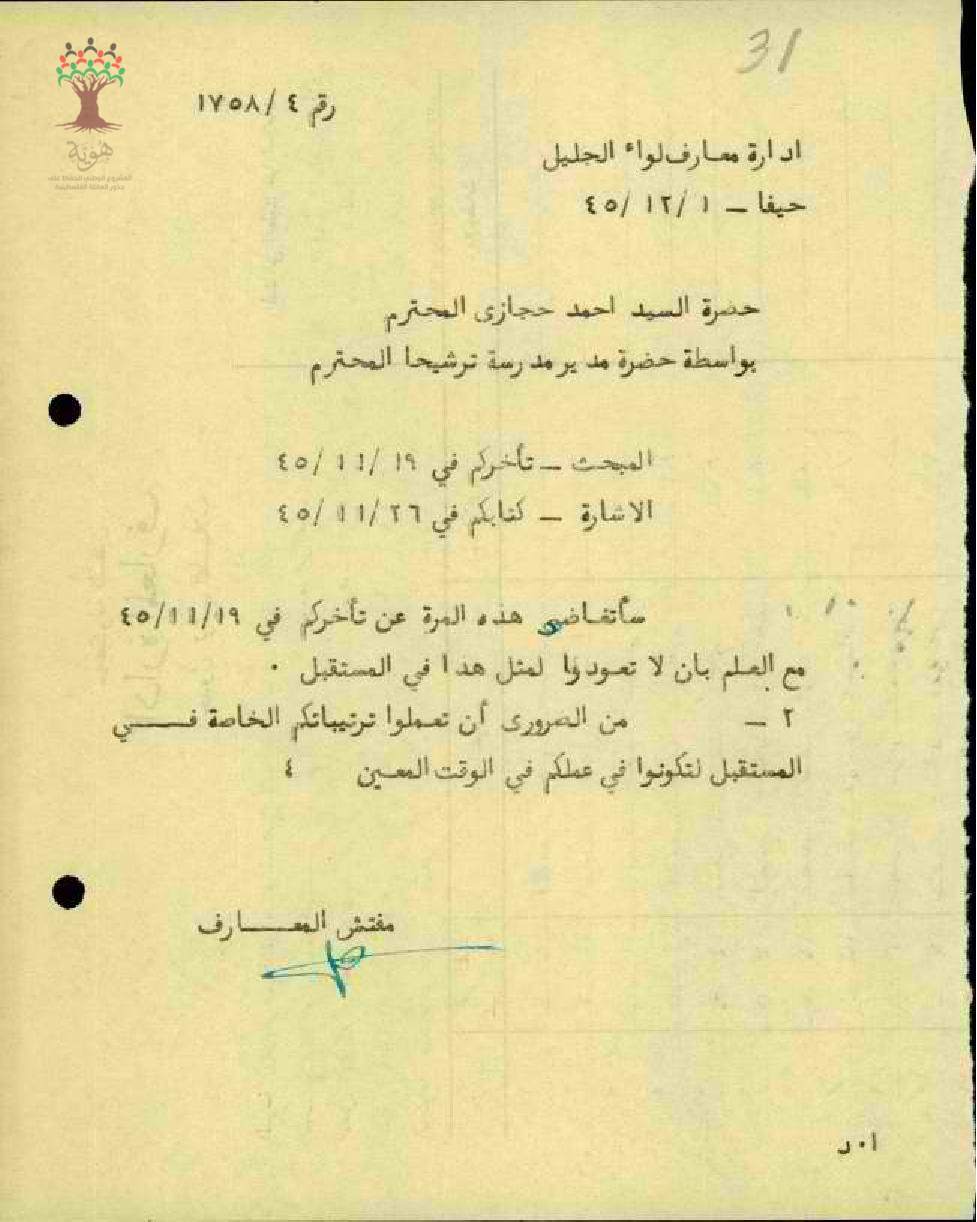 31
هوية
المشروع الوطني للحفاظ على
جذور العائلة الفلسطينية
رقم ٤ /١٧٥٨
ادارة معارف لواء الجليل
حيفا ــ ١ /١٢ /٤٥
حضرة السيد احمد حجازى المحترم
بواسطة حضرة مدير مدرسة ترشيحا المحترم
المبحث ــ تأخركم في ١٩ /١١ /٤٥
الاشارة ــ كتابكم في ٢٦ /١١ /٤٥
سأتغاضى هذه المرة عن تأخركم في ١٩/١١/٤٥
مع العلم بان لا تعودوا لمثل هذا في المستقبل ٠
٢ ــ من الضرورى أن تعملوا ترتيباتكم الخاصة فــــي
المستقبل لتكونوا في عملكم في الوقت المعين ٤
مفتش المعــــارف
ا٠د